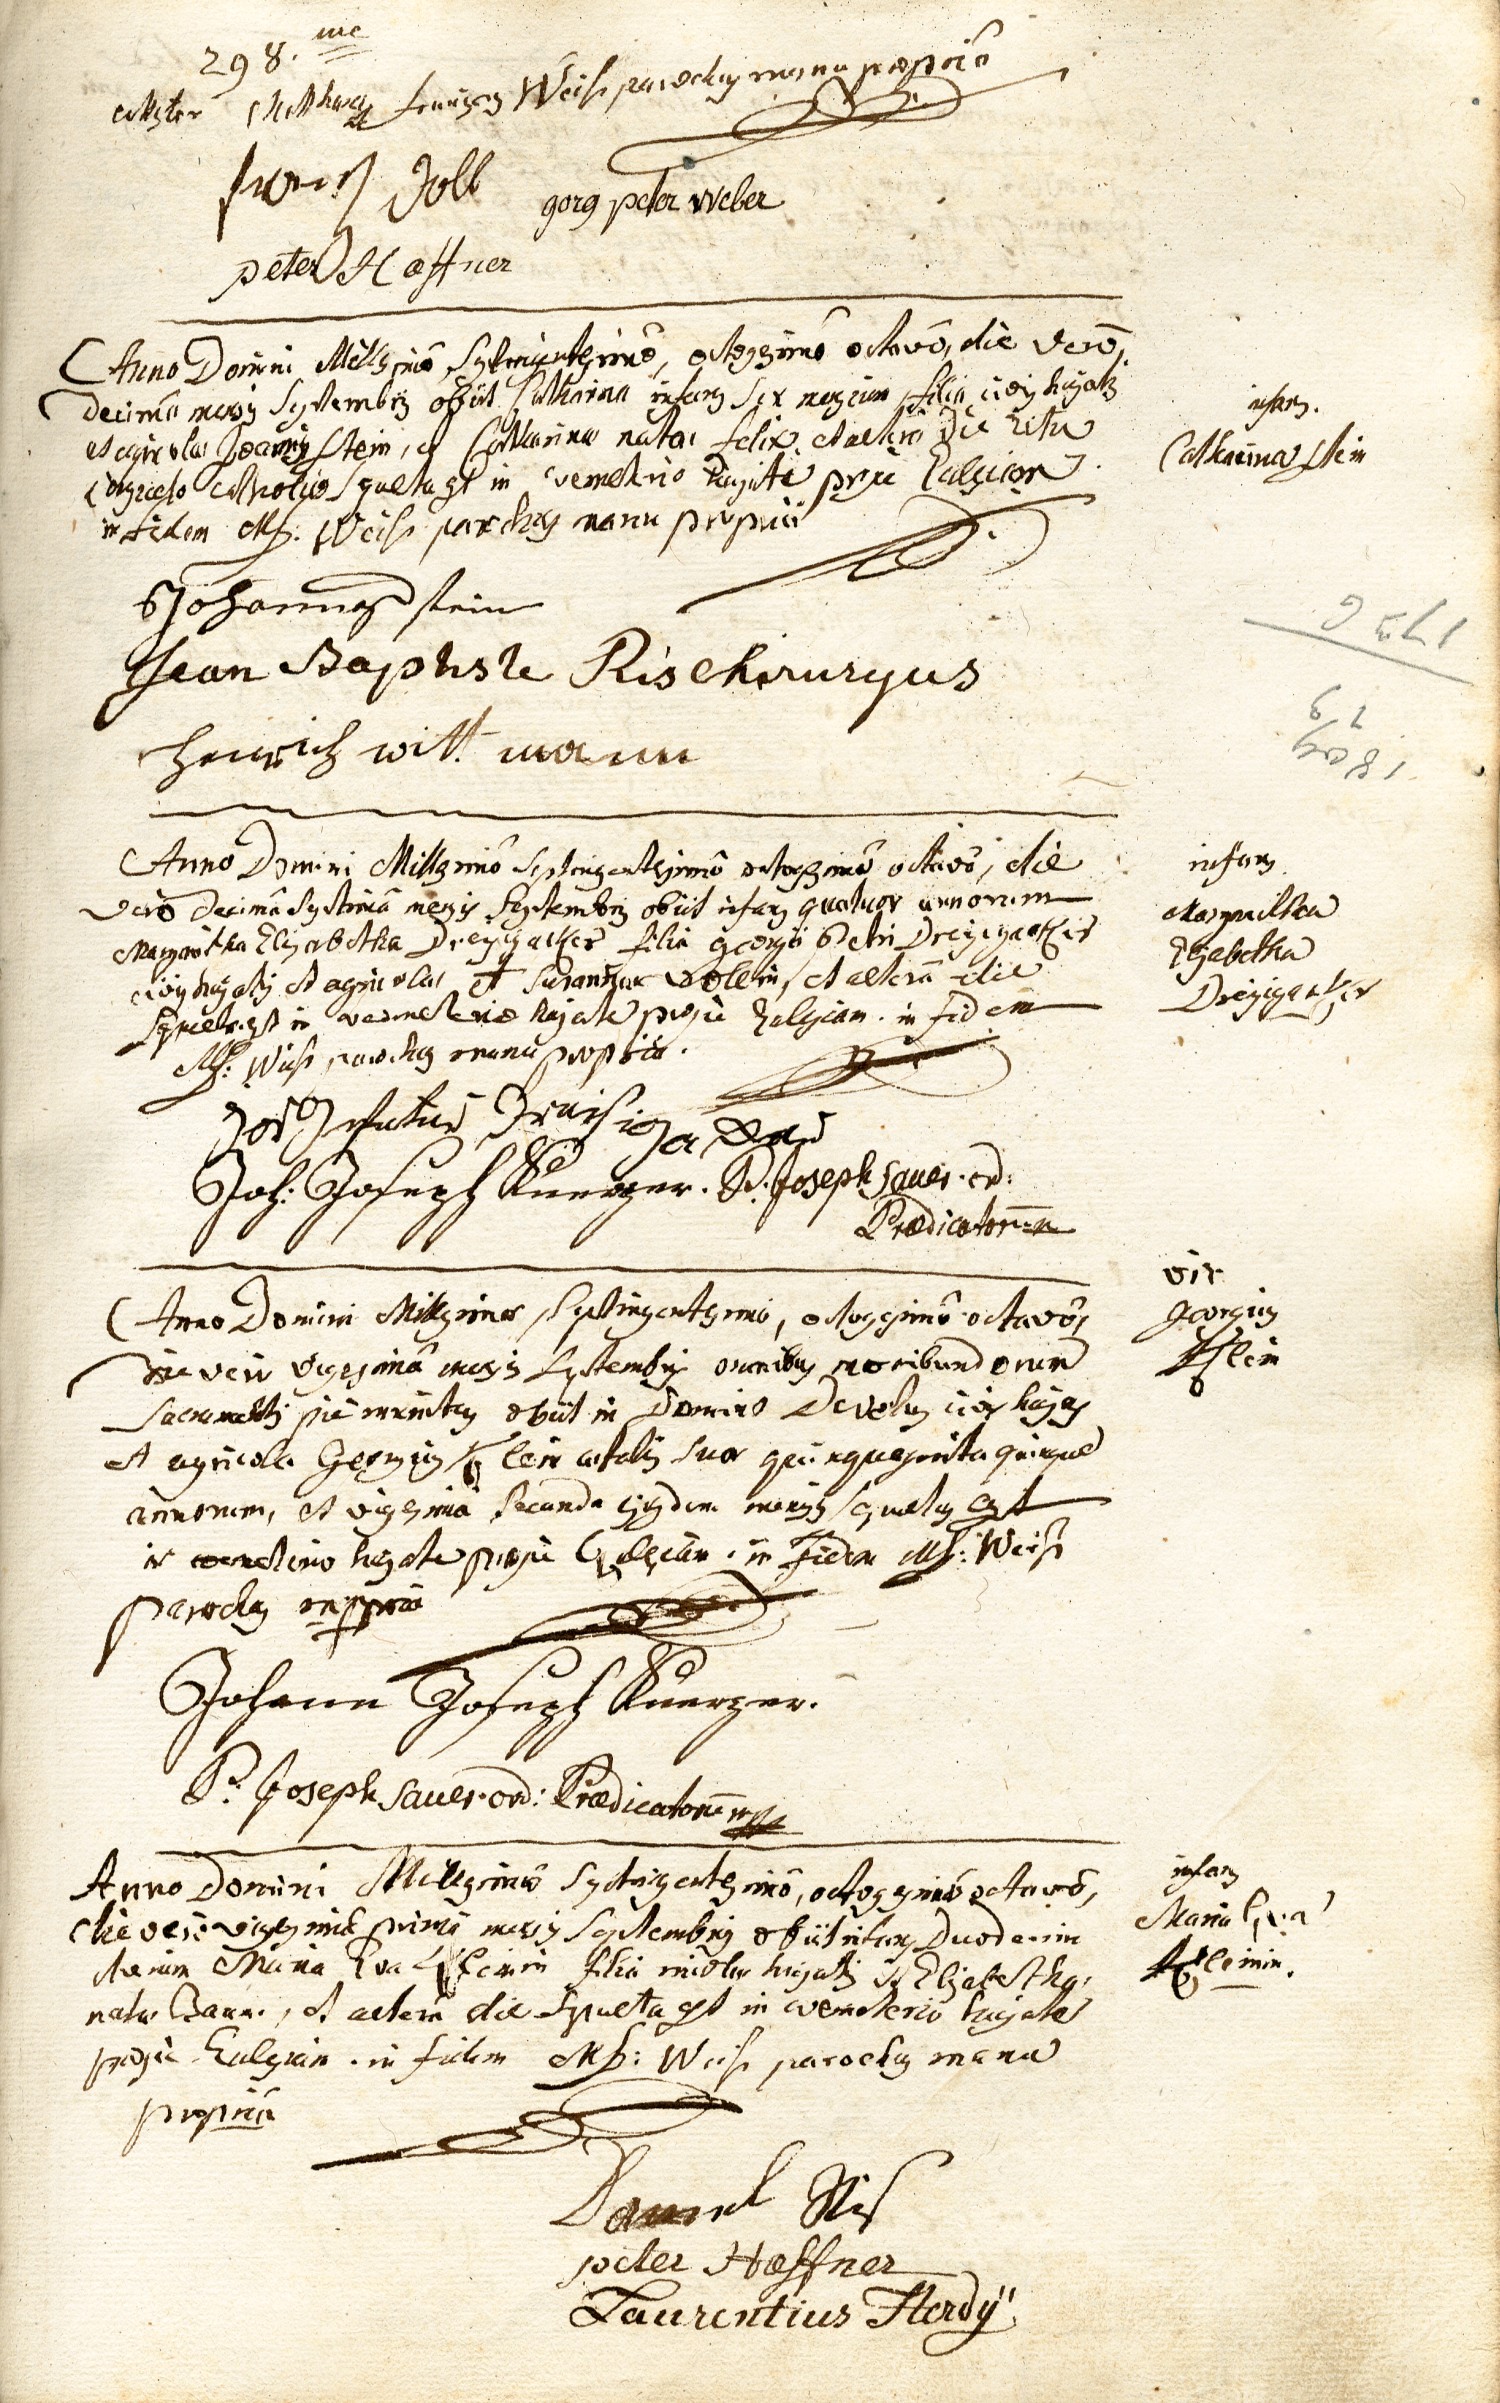 298. me
Mathias Weiß parochus manu propriâ
Joll gorg peter Weber
peter Haffner
Anno Domini Millesimô Septingentesimô, octogesimô octavô, die verô
decimâ mensis Septembris obiit Catharina infans sex mensium filia civis hujatis
et agricolae Joannis Stein, et Catharina nata felix, et altera die ritu
catholico sepulta est in coemeterio hujate prope Ecclesiam
in fidem Ms. Weiß parochus manu propriâ
infans.
Catharina Stein
Johannes Stein
Jean Baptiste Ris Chirurgus
1776
1809
Henrich wittmann
Anno Domini Millesimô Septingentesimô octogesimô octavô, die
verô decimâ septimâ mensis Septembris obiit infans quatuor annorum
Margaretha Elisabetha Dreysigacker filia georgii Petri Dreysigacker
civis hujatis et agricolae et Susannae et altera die
sepulta est in coemeterio hujate prope Ecclesiam. in fidem
Ms: Weiß parochus manu propria.
infans
Margaretha
Elisabetha
Dreysigacker
Joh: Joseph Kuerzer. P. Joseph Sauer. ord:
Prædicatorum
Anno Domini Millesimô Septingentesimô, octogesimô octavô,
die verô vigesimâ mensis Septembris omnibus moribundorum
sacramentis pie munitus obiit in Domino civis hujas
et agricola Georgius Klein aetatis suae quinquaginta quinque
annorum, et vigesimâ secunda ejusdem mensis sepultus est
in coemeterio hujate prope Ecclesiam. in fidem Ms: Weiß
parochus mppriâ
vir
Georgius
Klein
Johann Joseph Kuerzer.
P. Joseph Sauer. ord: Prædicatorum
Anno Domini Millesimô Septingentesimô, octogesimô octavô,
die verô vigesimâ primâ mensis Septembris obiit infans duodecim
dierum Maria Eva Kleinin filia hujatis et Elisabetha
nata, et altera die sepulta est in coemeterio hujate
prope Ecclesiam. in fidem Ms: Weiß parochus manu
propriâ
infans
Maria Eva
Kleinin.
Daniel Ris
peter Haffner
Laurentius Herdÿ